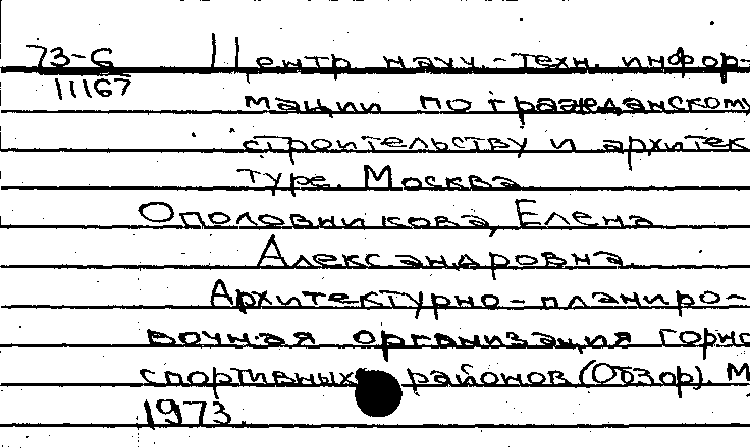 73-6 Центр науч.-техн. инфор-
11167
мации по гражданскому
строительству и архитек
туре. Москва
Ополовникова, Елена
Александровна.
Архитектурно-планиро-
вочная организация горно
спортивных районов (Обзор). М
1973.